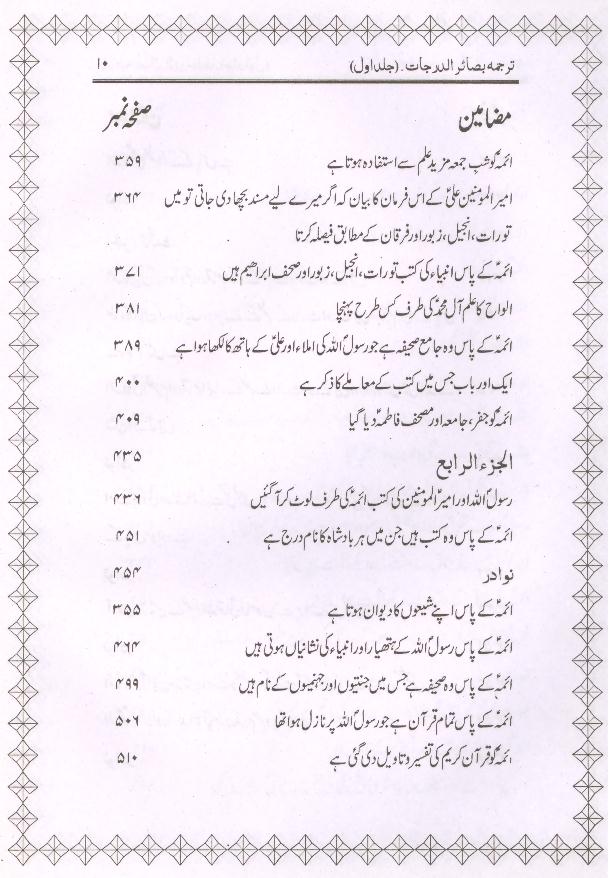 ترجمہ بصائر الدرجات۔ (جلد اول) ۱۰
مضامین صفحہ نمبر
ائمہؑ کو شبِ جمعہ مزید علم سے استفادہ ہوتا ہے ۳۵۹
امیر المومنین علیؑ کے اس فرمان کا بیان کہ اگر میرے لیے مسند بچھا دی جاتی تو میں ۳۶۴
تورات، انجیل، زبور اور فرقان کے مطابق فیصلہ کرتا
ائمہؑ کے پاس انبیاء کی کتب تورات، انجیل، زبور اور صحف ابراھیم ہیں ۳۷۱
الواح کا علم آل محمدؐ کی طرف کس طرح پہنچا ۳۸۱
ائمہؑ کے پاس وہ جامع صحیفہ ہے جو رسولؐ اللہ کی املاء اور علیؑ کے ہاتھ کا لکھا ہوا ہے ۳۸۹
ایک اور باب جس میں کتب کے معاملے کا ذکر ہے ۴۰۰
ائمہؑ کو جفر، جامعہ اور مصحف فاطمہؑ دیا گیا ۴۰۹
الجزء الرابع ۴۳۵
رسولؐ اللہ اور امیرؑ المومنین کی کتب ائمہؑ کی طرف لوٹ کر آ گئیں ۴۳۶
ائمہؑ کے پاس وہ کتب ہیں جن میں ہر بادشاہ کا نام درج ہے ۴۵۱
نوادر ۴۵۴
ائمہؑ کے پاس اپنے شیعوں کا دیوان ہوتا ہے ۳۵۵
ائمہؑ کے پاس رسولؐ اللہ کے ہتھیار اور انبیاء کی نشانیاں ہوتی ہیں ۴۶۴
ائمہؑ کے پاس وہ صحیفہ ہے جس میں جنتیوں اور جہنمیوں کے نام ہیں ۴۹۹
ائمہؑ کے پاس تمام قرآن ہے جو رسولؐ اللہ پر نازل ہوا تھا ۵۰۶
ائمہؑ کو قرآن کریم کی تفسیر و تاویل دی گئی ہے ۵۱۰